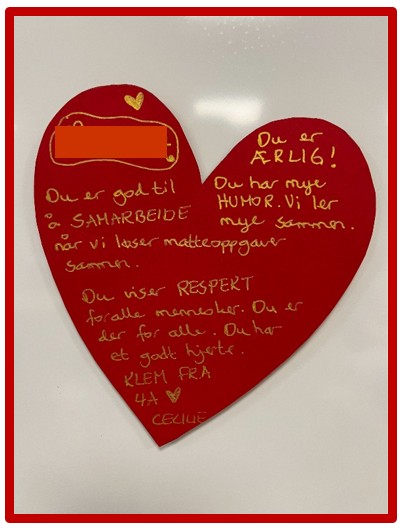 Du er god til
å SAMARBEIDE
når vi løser matteoppgaver
sammen.
Du er
ÆRLIG!
Du har mye
HUMOR. Vi ler
mye sammen.
Du viser RESPEKT
for alle mennesker. Du er
der for alle. Du har
et godt hjerte.
KLEM FRA
4A
CECILIE